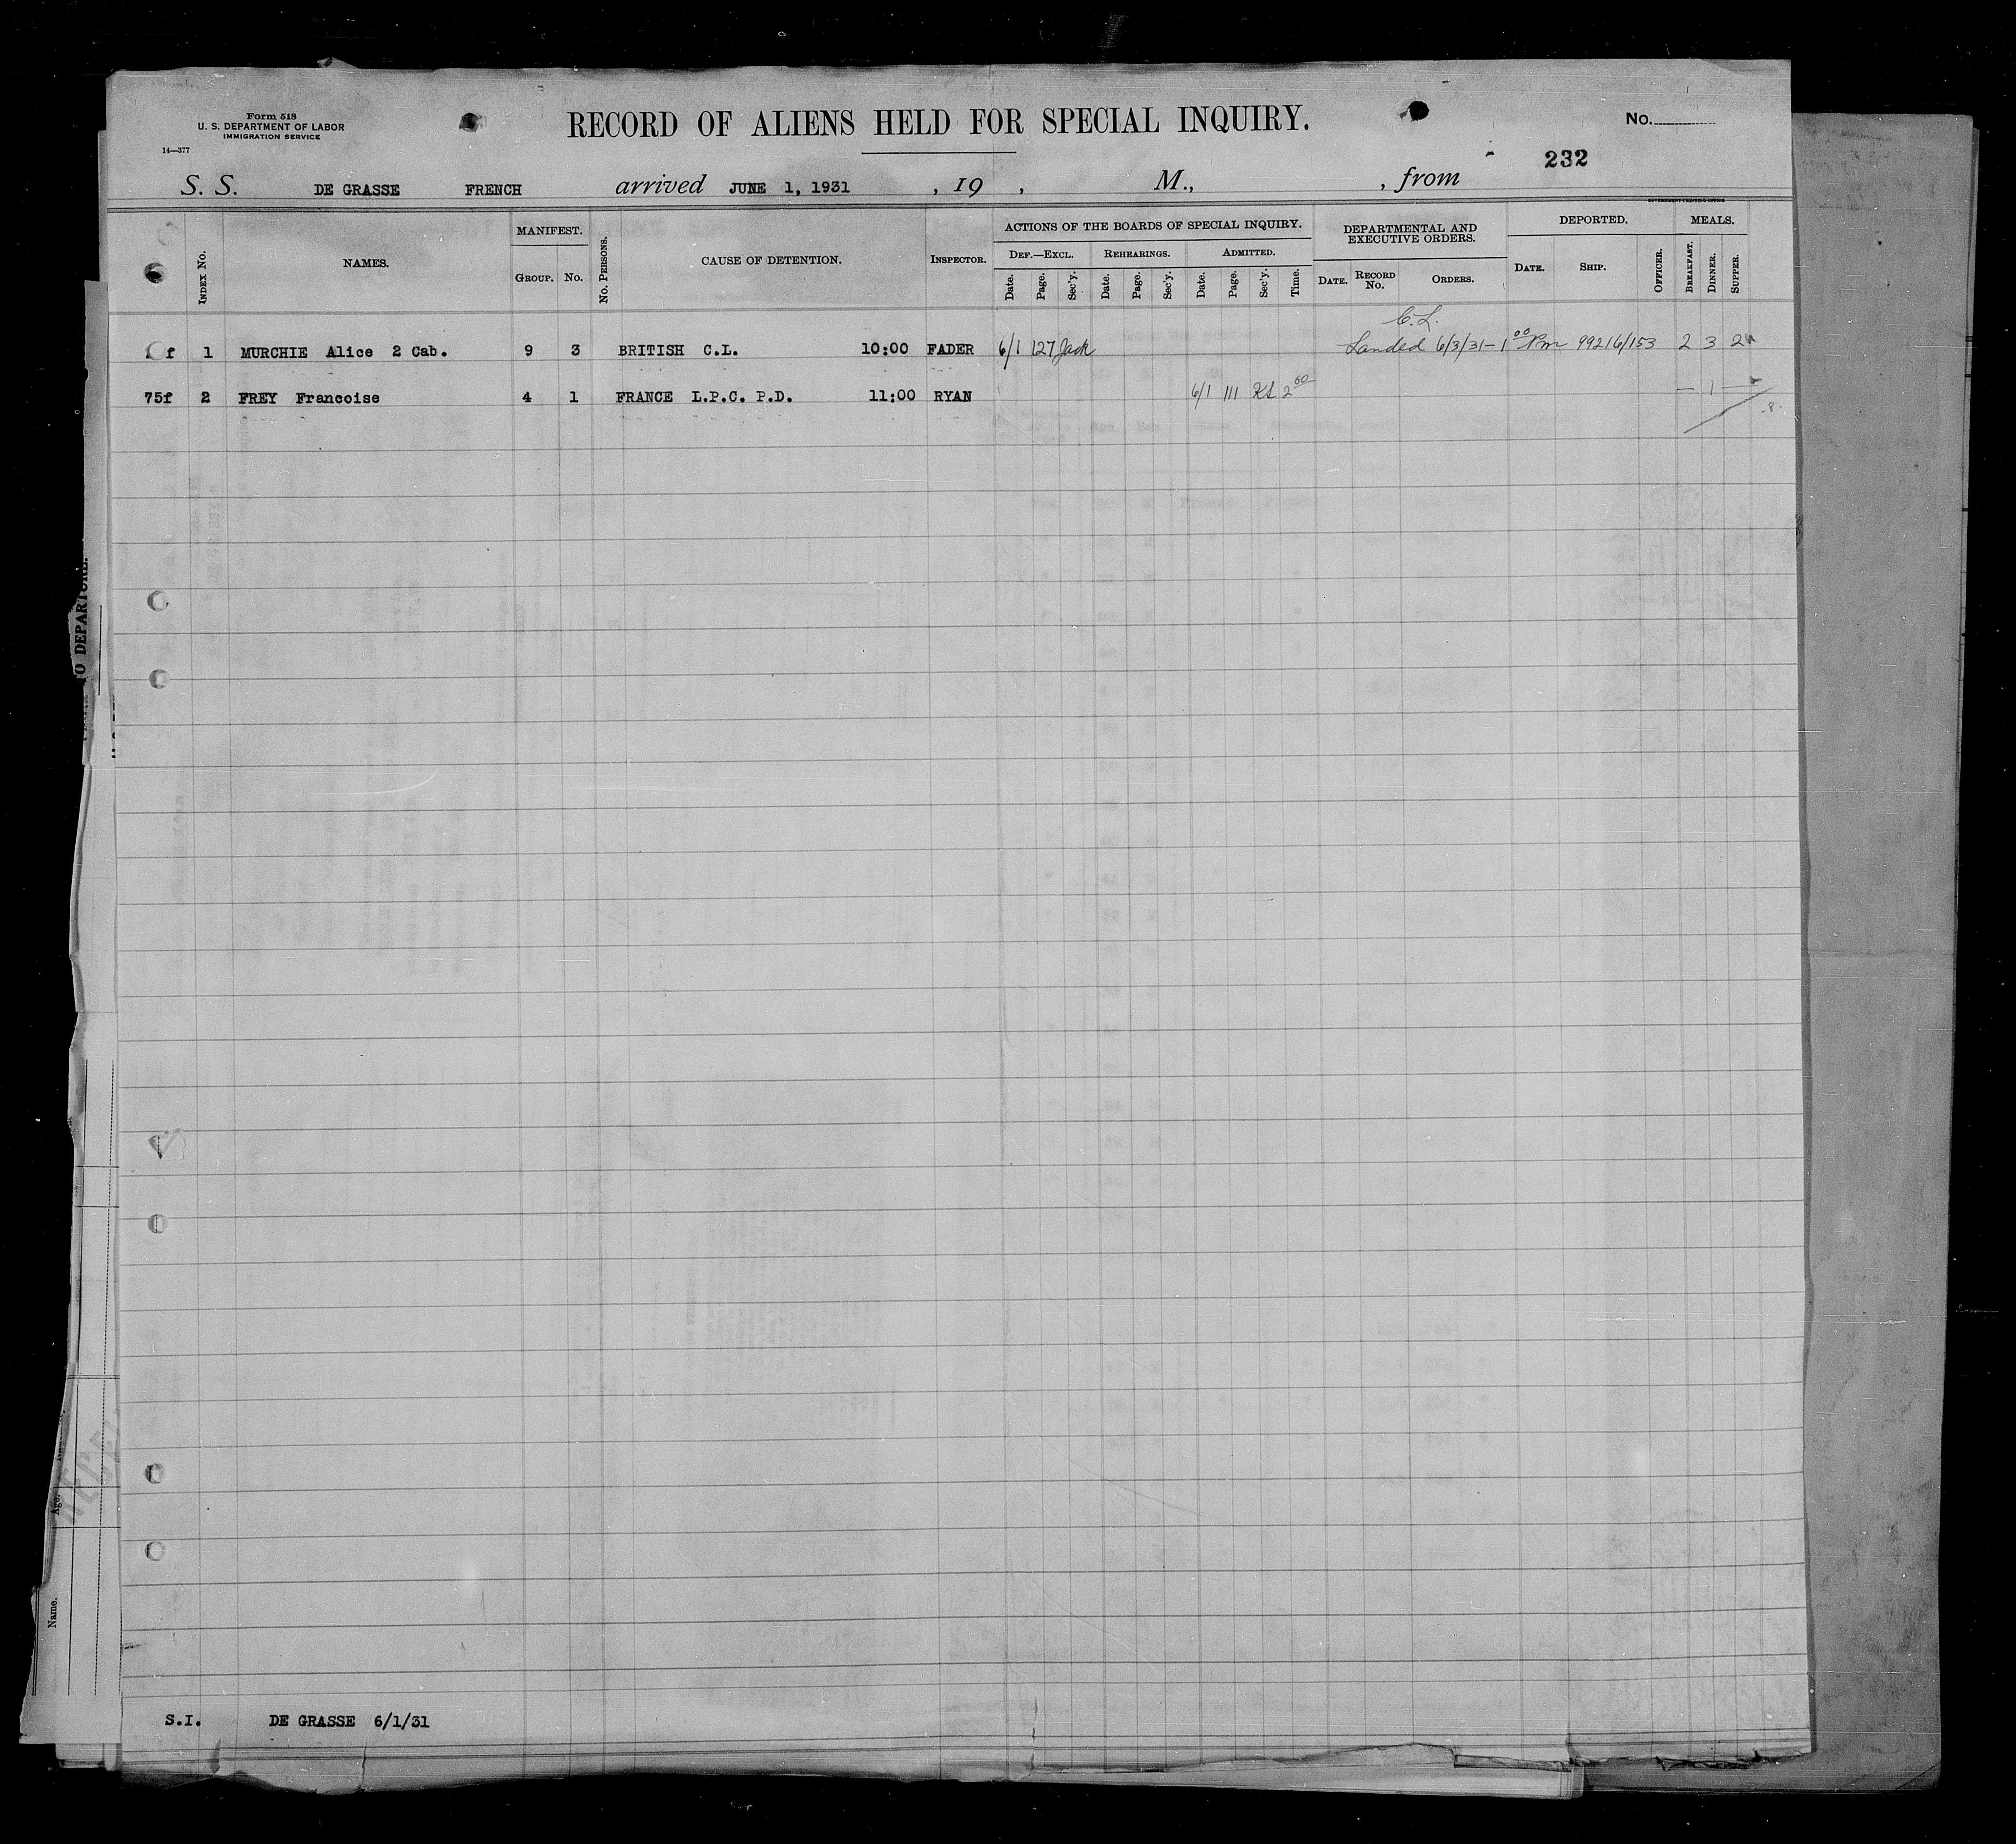 Form 518
U. S. DEPARTMENT OF LABOR
IMMIGRATION SERVICE
14—377
RECORD OF ALIENS HELD FOR SPECIAL INQUIRY.
No.
232
S. S. DE GRASSE FRENCH arrived JUNE 1, 1931 , 19 , M., , from
GOVERNMENT PRINTING OFFICE
INDEX No. NAMES. MANIFEST. GROUP. No. No. PERSONS. CAUSE OF DETENTION. INSPECTOR.
ACTIONS OF THE BOARDS OF SPECIAL INQUIRY.
DEF.—EXCL. REHEARINGS. ADMITTED.
Date. Page. Sec'y. Date. Page. Sec'y. Date. Page. Sec'y. Time.
DEPARTMENTAL AND EXECUTIVE ORDERS.
DATE. RECORD No. ORDERS.
DEPORTED.
DATE. SHIP. OFFICER.
MEALS.
BREAKFAST. DINNER. SUPPER.
C.L.
f 1 MURCHIE Alice 2 Cab. 9 3 BRITISH C.L. 10:00 FADER 6/1 127 Jack Landed 6/3/31-1 00 Pm 99216/153 2 3 2
75f 2 FREY Francoise 4 1 FRANCE L.P.C. P.D. 11:00 RYAN 6/1 111 KS 2 00 — 1 —
S.I. DE GRASSE 6/1/31
O DEPARTURE.
Age.
Name.